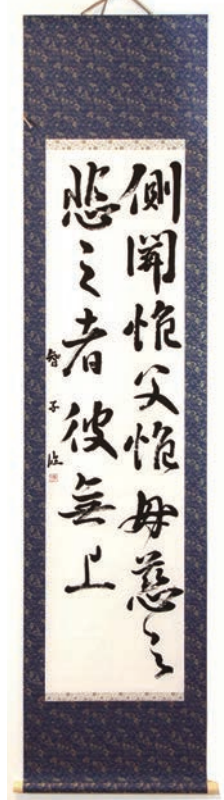 側聞惟父惟母慈之
悲之者彼無上
智子臨